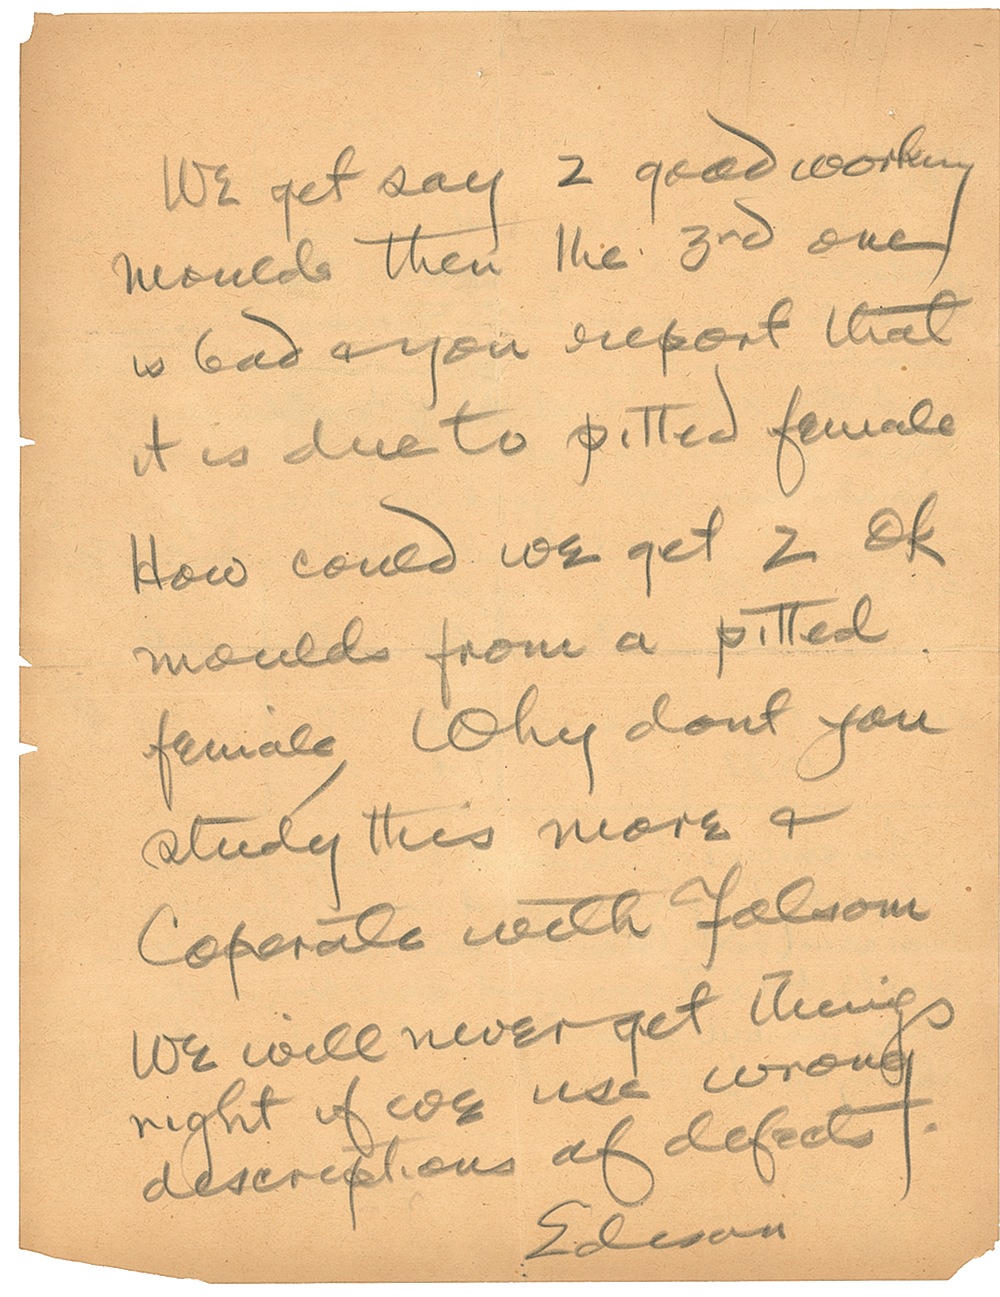 We get say 2 good working
moulds then the 3rd one
is bad & you report that
it is due to pitted female
How could we get 2 Ok
moulds from a pitted
female, Why dont you
study this more &
Coperate with Folsom
We will never get things
right if we use wrong
descriptions of defects.
Edison